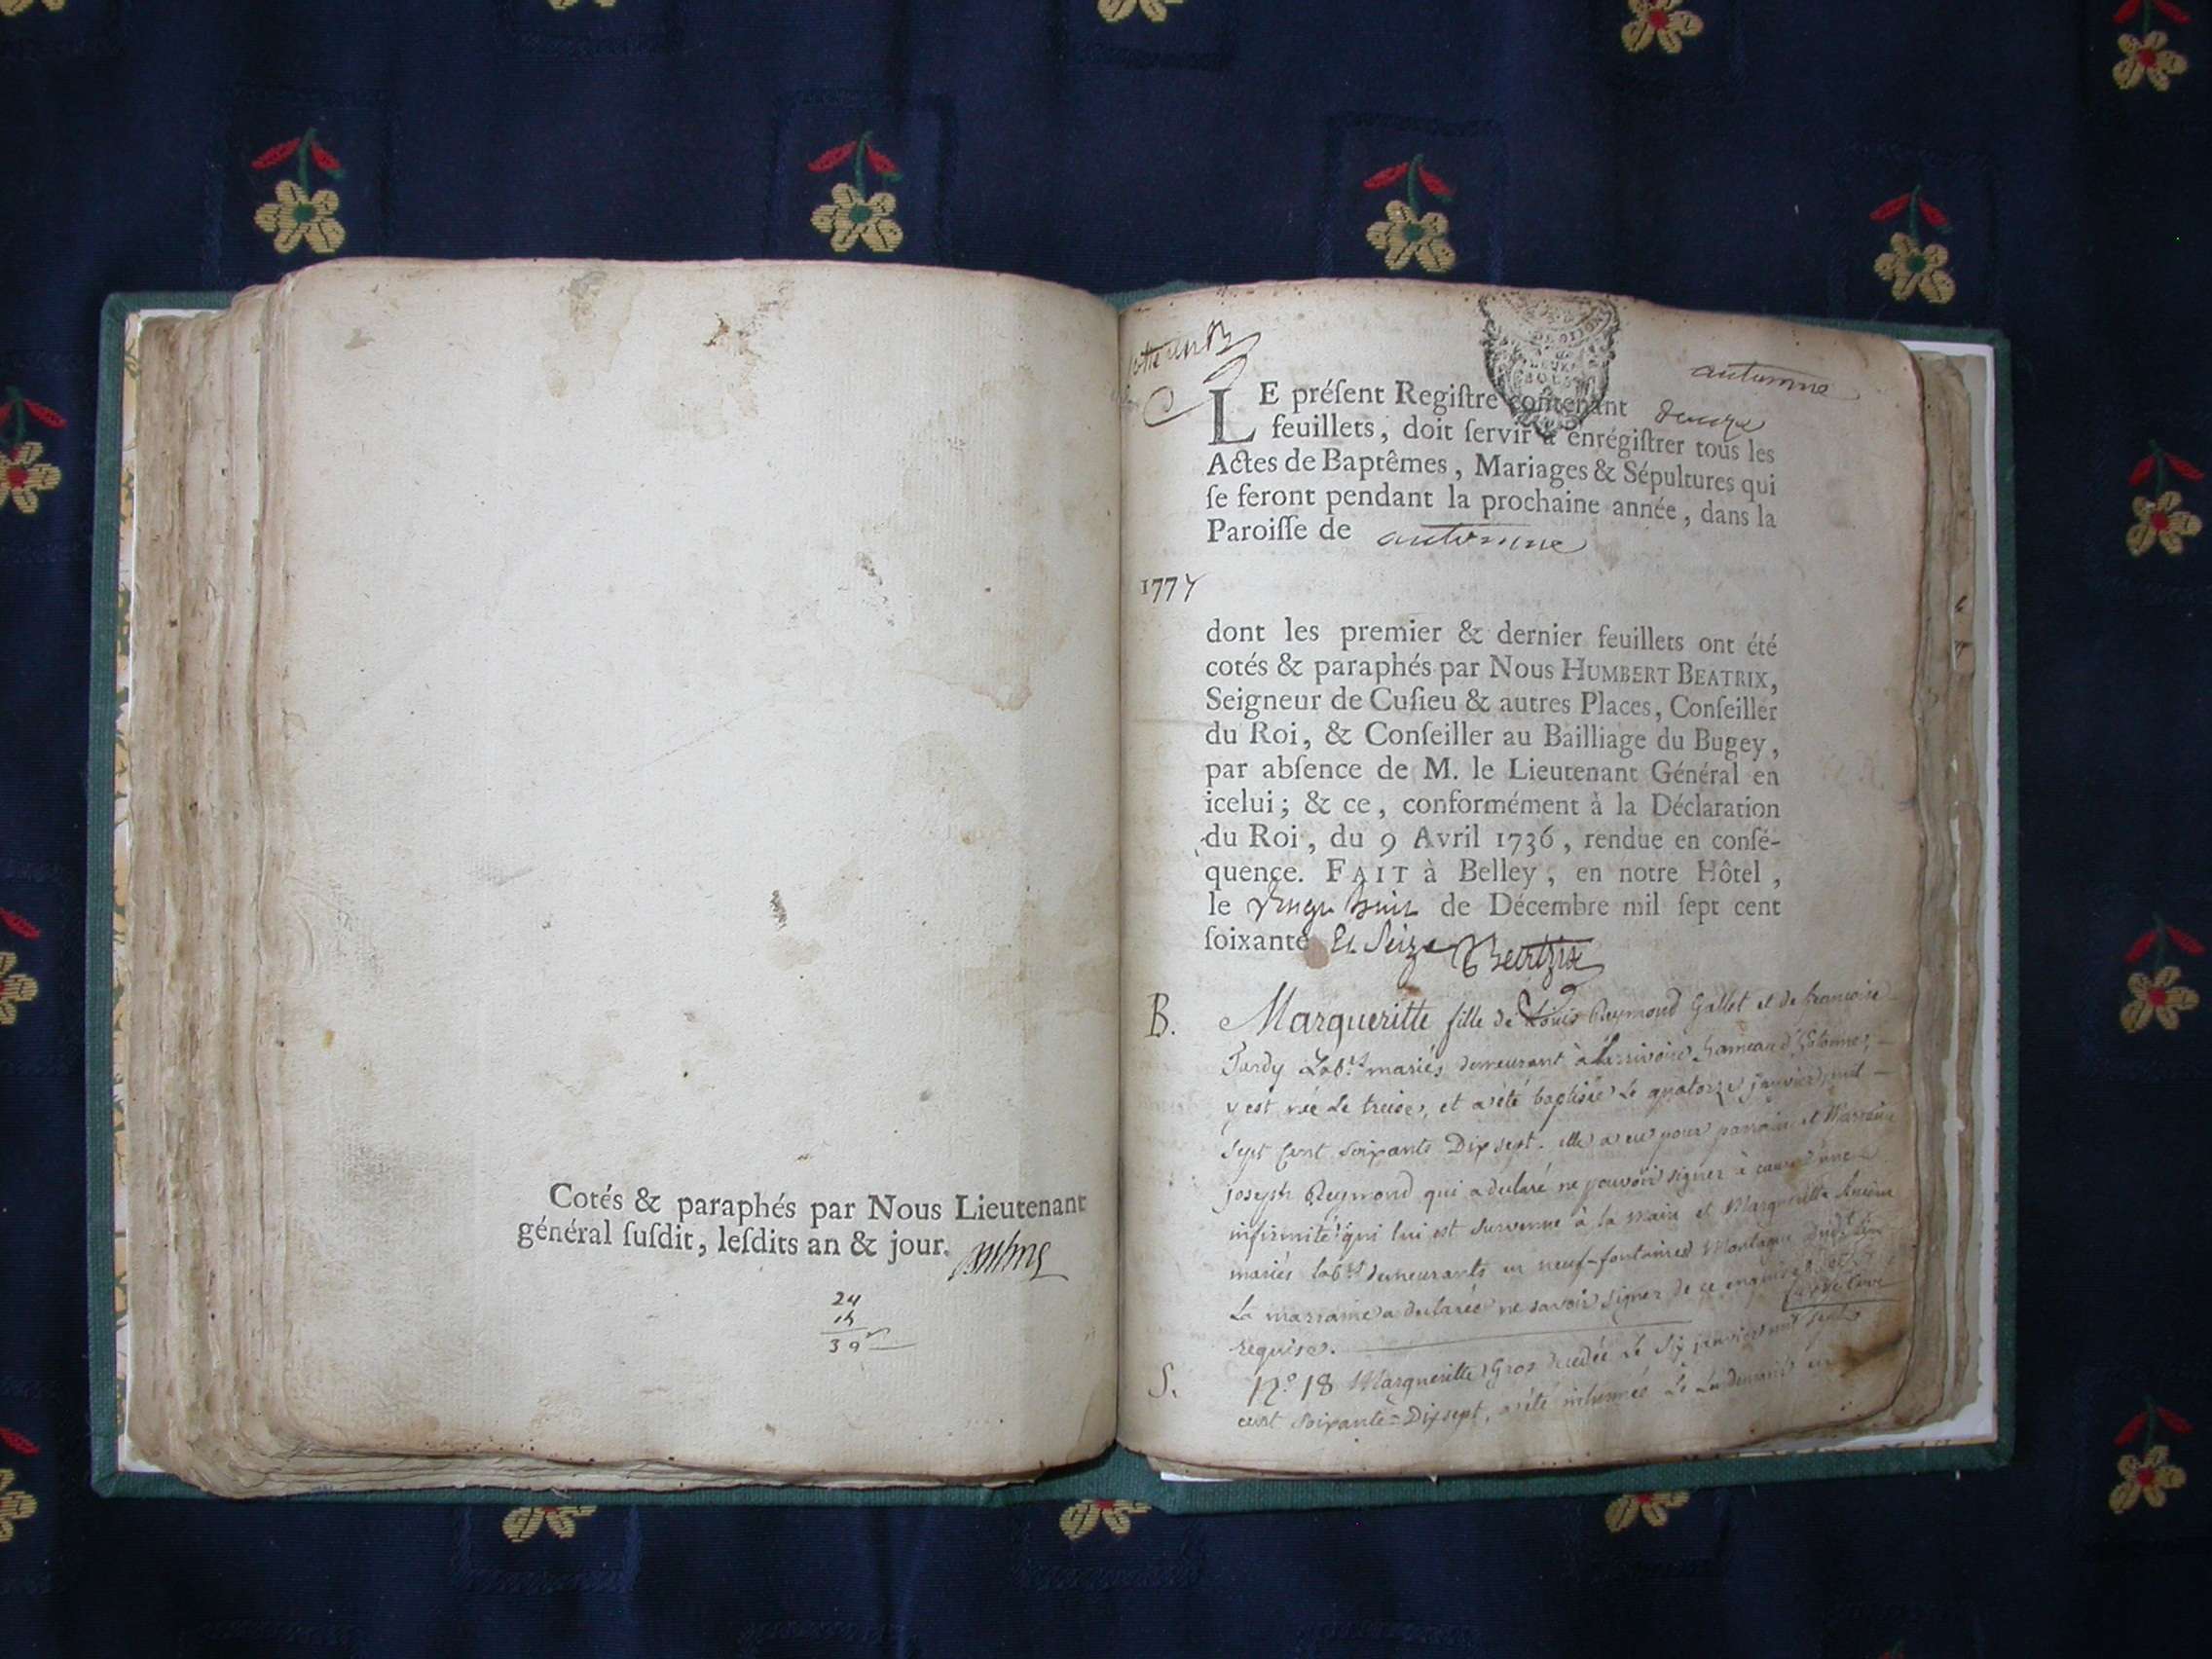 Cotés & paraphés par Nous Lieutenant
général ſuſdit, leſdits an & jour.
24
15
39
autumne
LE préſent Regiſtre contenant douze
feuillets, doit ſervir à enrégiſtrer tous les
Actes de Baptêmes, Mariages & Sépultures qui
ſe feront pendant la prochaine année, dans la
Paroiſſe de autumne
1777
dont les premier & dernier feuillets ont été
cotés & paraphés par Nous HUMBERT BEATRIX,
Seigneur de Cuſieu & autres Places, Conſeiller
du Roi, & Conſeiller au Bailliage du Bugey,
par abſence de M. le Lieutenant Général en
icelui; & ce, conformément à la Déclaration
du Roi, du 9 Avril 1736, rendue en conſé-
quence. FAIT à Belley, en notre Hôtel,
le vingt huit de Décembre mil ſept cent
ſoixante et Seize Beatrix
B. Margueritte fille de Louis Reymond Gallet et de francoise
Tardy Lab.rs mariés demeurant à hameau
y est née le treize, et a été baptisée le quatorze janvier mil
Sept Cent Soixante Dix sept. elle a eu pour parrain et Marraine
joseph Reymond qui a declaré ne pouvoir signer à cause d'une
infirmité qui lui est survenue à la main et Margueritte
mariés lab.rs demeurants en neuf-fontaines
La marraine a declarée ne savoir signer de ce enquise et
requise.
S. N.° 18 Margueritte Gros decedée Le Six janvier mil Sept
cent Soixante = Dix sept, a été inhumée Le Lendemain